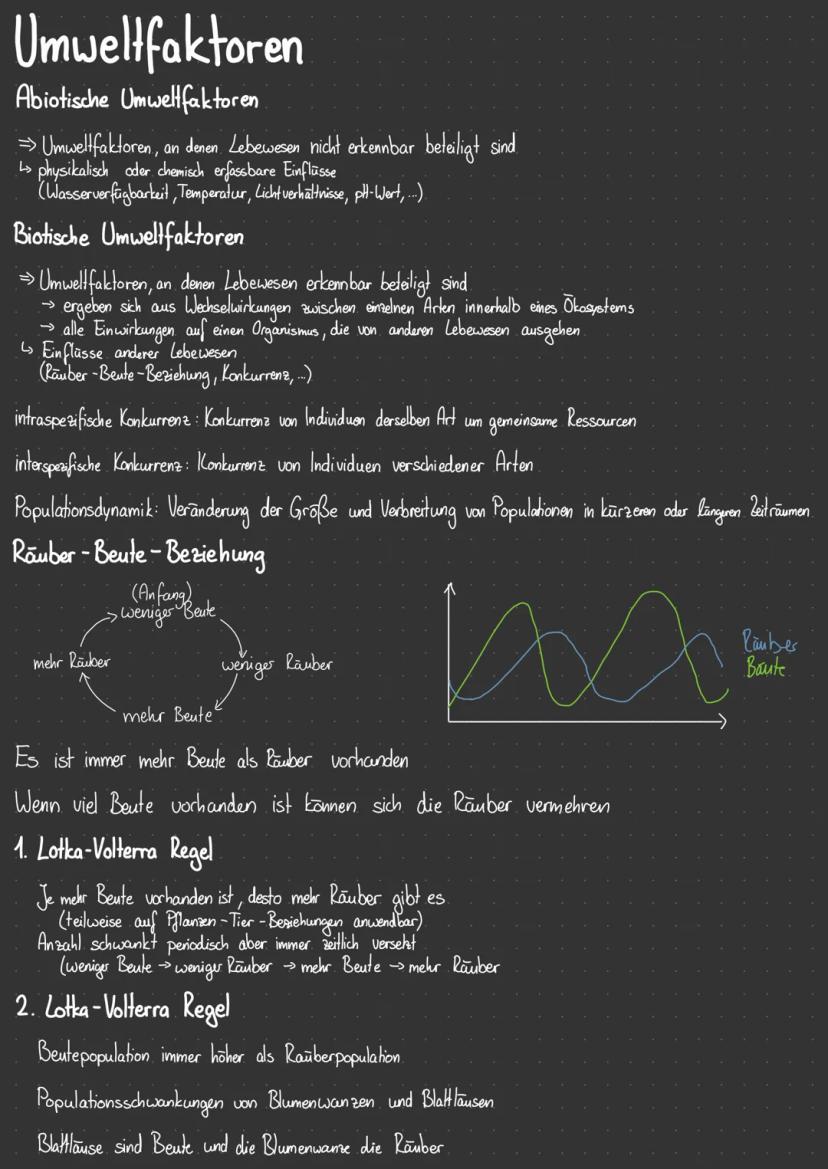 Umweltfaktoren
Abiotische Umweltfaktoren
⇒ Umweltfaktoren, an denen Lebewesen nicht erkennbar beteiligt sind
↳ physikalisch oder chemisch erfassbare Einflüsse
(Wasserverfügbarkeit, Temperatur, Lichtverhältnisse, pH-Wert, ...)
Biotische Umweltfaktoren
⇒ Umweltfaktoren, an denen Lebewesen erkennbar beteiligt sind
→ ergeben sich aus Wechselwirkungen zwischen einzelnen Arten innerhalb eines Ökosystems
→ alle Einwirkungen auf einen Organismus, die von anderen Lebewesen ausgehen
↳ Einflüsse anderer Lebewesen
(Räuber-Beute-Beziehung, Konkurrenz, ...)
intraspezifische Konkurrenz: Konkurrenz von Individuen derselben Art um gemeinsame Ressourcen
interspezifische Konkurrenz: Konkurrenz von Individuen verschiedener Arten
Populationsdynamik: Veränderung der Größe und Verbreitung von Populationen in kürzeren oder längeren Zeiträumen
Räuber-Beute-Beziehung
(Anfang)
weniger Beute
mehr Räuber
weniger Räuber
mehr Beute
Räuber
Beute
Es ist immer mehr Beute als Räuber vorhanden
Wenn viel Beute vorhanden ist können sich die Räuber vermehren
1. Lotka-Volterra Regel
Je mehr Beute vorhanden ist, desto mehr Räuber gibt es
(teilweise auf Pflanzen-Tier-Beziehungen anwendbar)
Anzahl schwankt periodisch aber immer zeitlich versetzt
(weniger Beute → weniger Räuber → mehr Beute → mehr Räuber
2. Lotka-Volterra Regel
Beutepopulation immer höher als Raüberpopulation
Populationsschwankungen von Blumenwanzen und Blattläusen
Blattläuse sind Beute und die Blumenwanze die Räuber